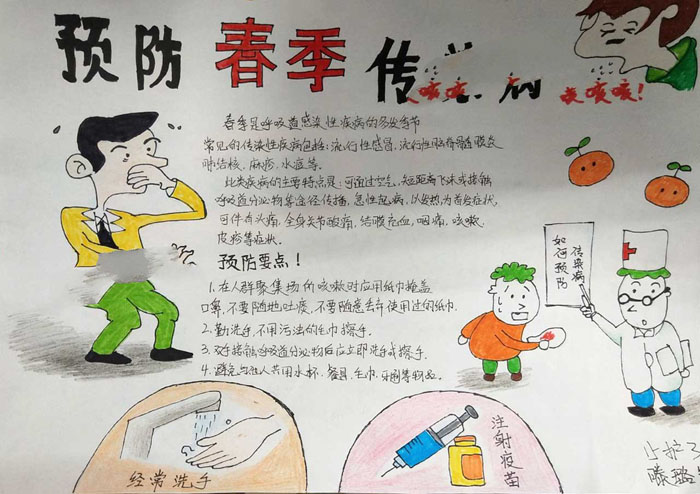 预防春季传 病
咳咳 咳咳！
春季是呼吸道感染性疾病的多发季节
常见的传染性疾病包括：流行性感冒、流行性脑脊髓膜炎
肺结核、麻疹、水痘等。
此类疾病的主要特点是：可通过空气、短距离飞沫或接触
呼吸道分泌物等途径传播，急性起病，以发热为首发症状，
可伴有头痛，全身关节酸痛，结膜充血，咽痛，咳嗽
皮疹等症状。
预防要点！
1、在人群聚集场所咳嗽时应用纸巾掩盖
口鼻，不要随地吐痰，不要随意丢弃使用过的纸巾.
2、勤洗手，不用污浊的毛巾擦手.
3、双手接触呼吸道分泌物后应立即洗手或擦手.
4、避免与他人共用水杯、餐具、毛巾、牙刷等物品。
传染病
如何预防
经常洗手
注射疫苗